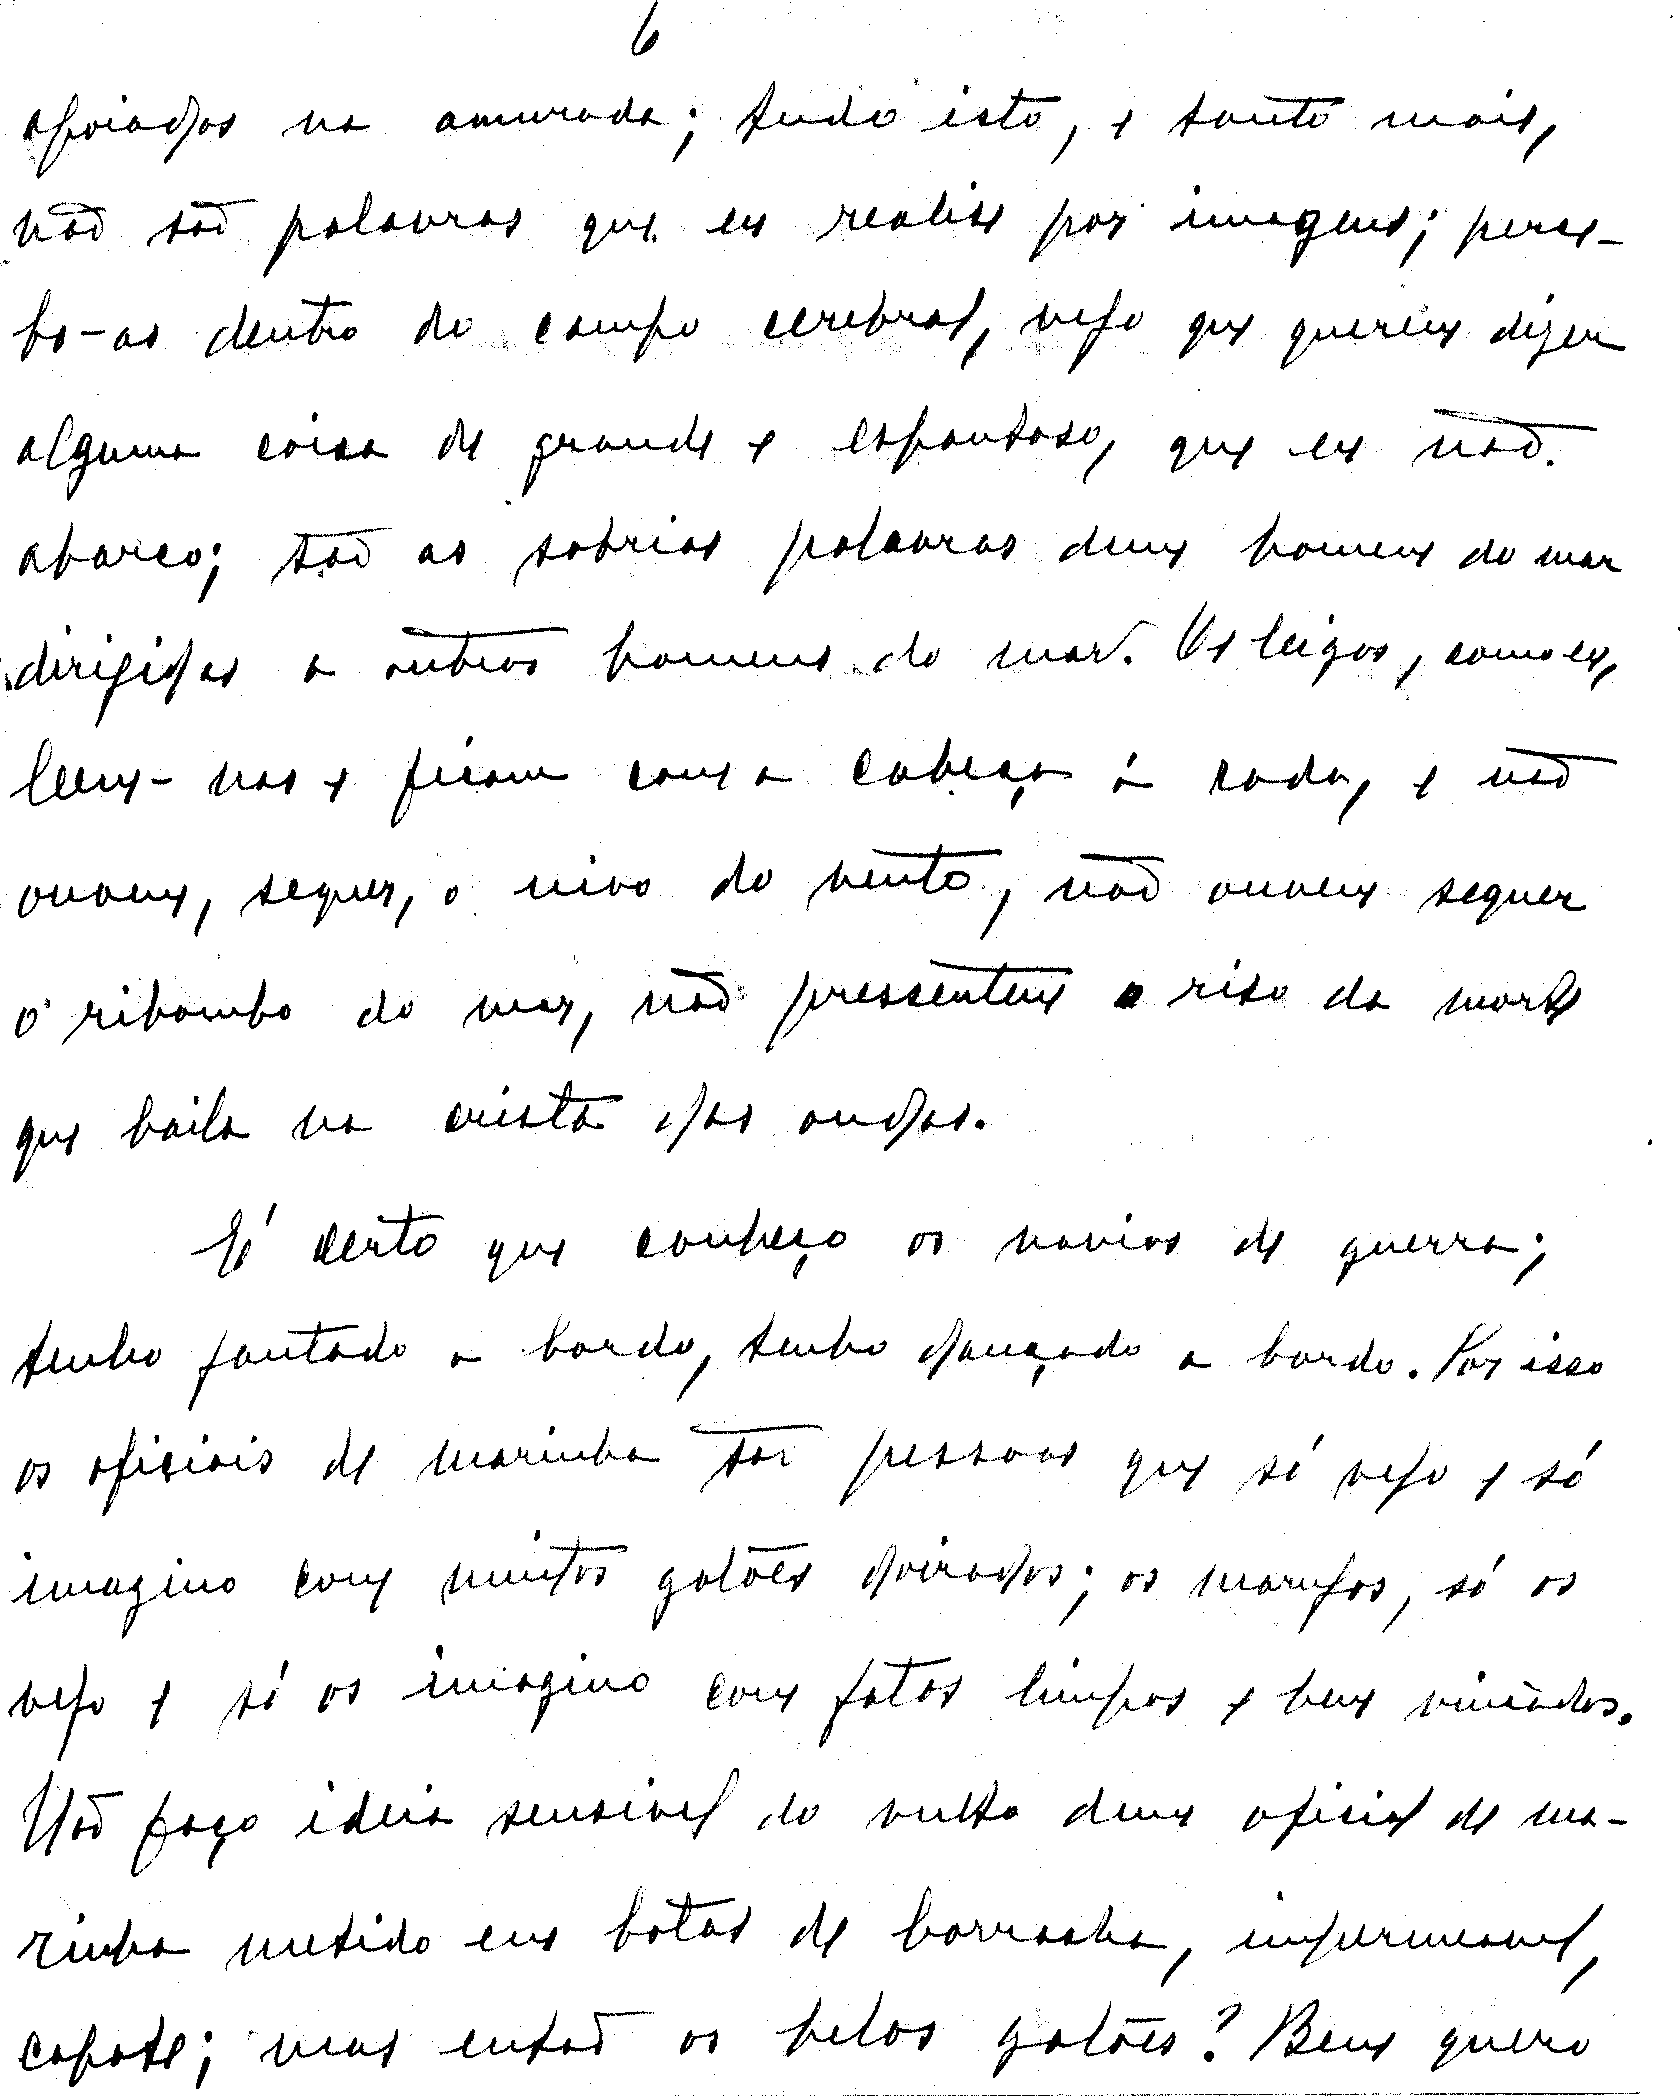 6
apoiados na amurada; tudo isto, e tanto mais,
não são palavras que eu realise por imagens; perce-
bo-as dentro do campo cerebral, vejo que querem dizer
alguma coisa de grande e espantoso, que eu não
abarco; são as sobrias palavras dum homem do mar
dirigidas a outros homens do mar. Os leigos, como eu,
leem-nas e ficam com a cabeça á roda, e não
ouvem, sequer, o uivo do vento, não ouvem sequer
o ribombo do mar, não pressentem o riso da morte
que baila na crista das ondas.
É certo que conheço os navios de guerra;
tenho jantado a bordo, tenho dançado a bordo. Por isso
os oficiais de marinha são pessoas que só vejo e só
imagino com muitos galões doirados; os marujos, só os
vejo e só os imagino com fatos limpos e bem vincados.
Não faço ideia sensivel do vulto dum oficial de ma-
rinha metido em botas de borracha, impermeavel,
capote; mas então os belos galões? Bem quero